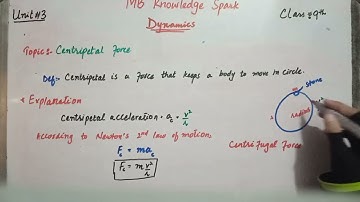 Unit#3
MB Knowledge Spark
Class 9th
Dynamics
Topic: Centripetal Force
Def: Centripetal is a Force that keeps a body to move in circle.
Explanation
Centripetal acceleration = ac = v²/r
According to Newton's 2nd law of motion.
Fc = mac
Fc = m v²/r
stone
m
radius
Centrifugal Force